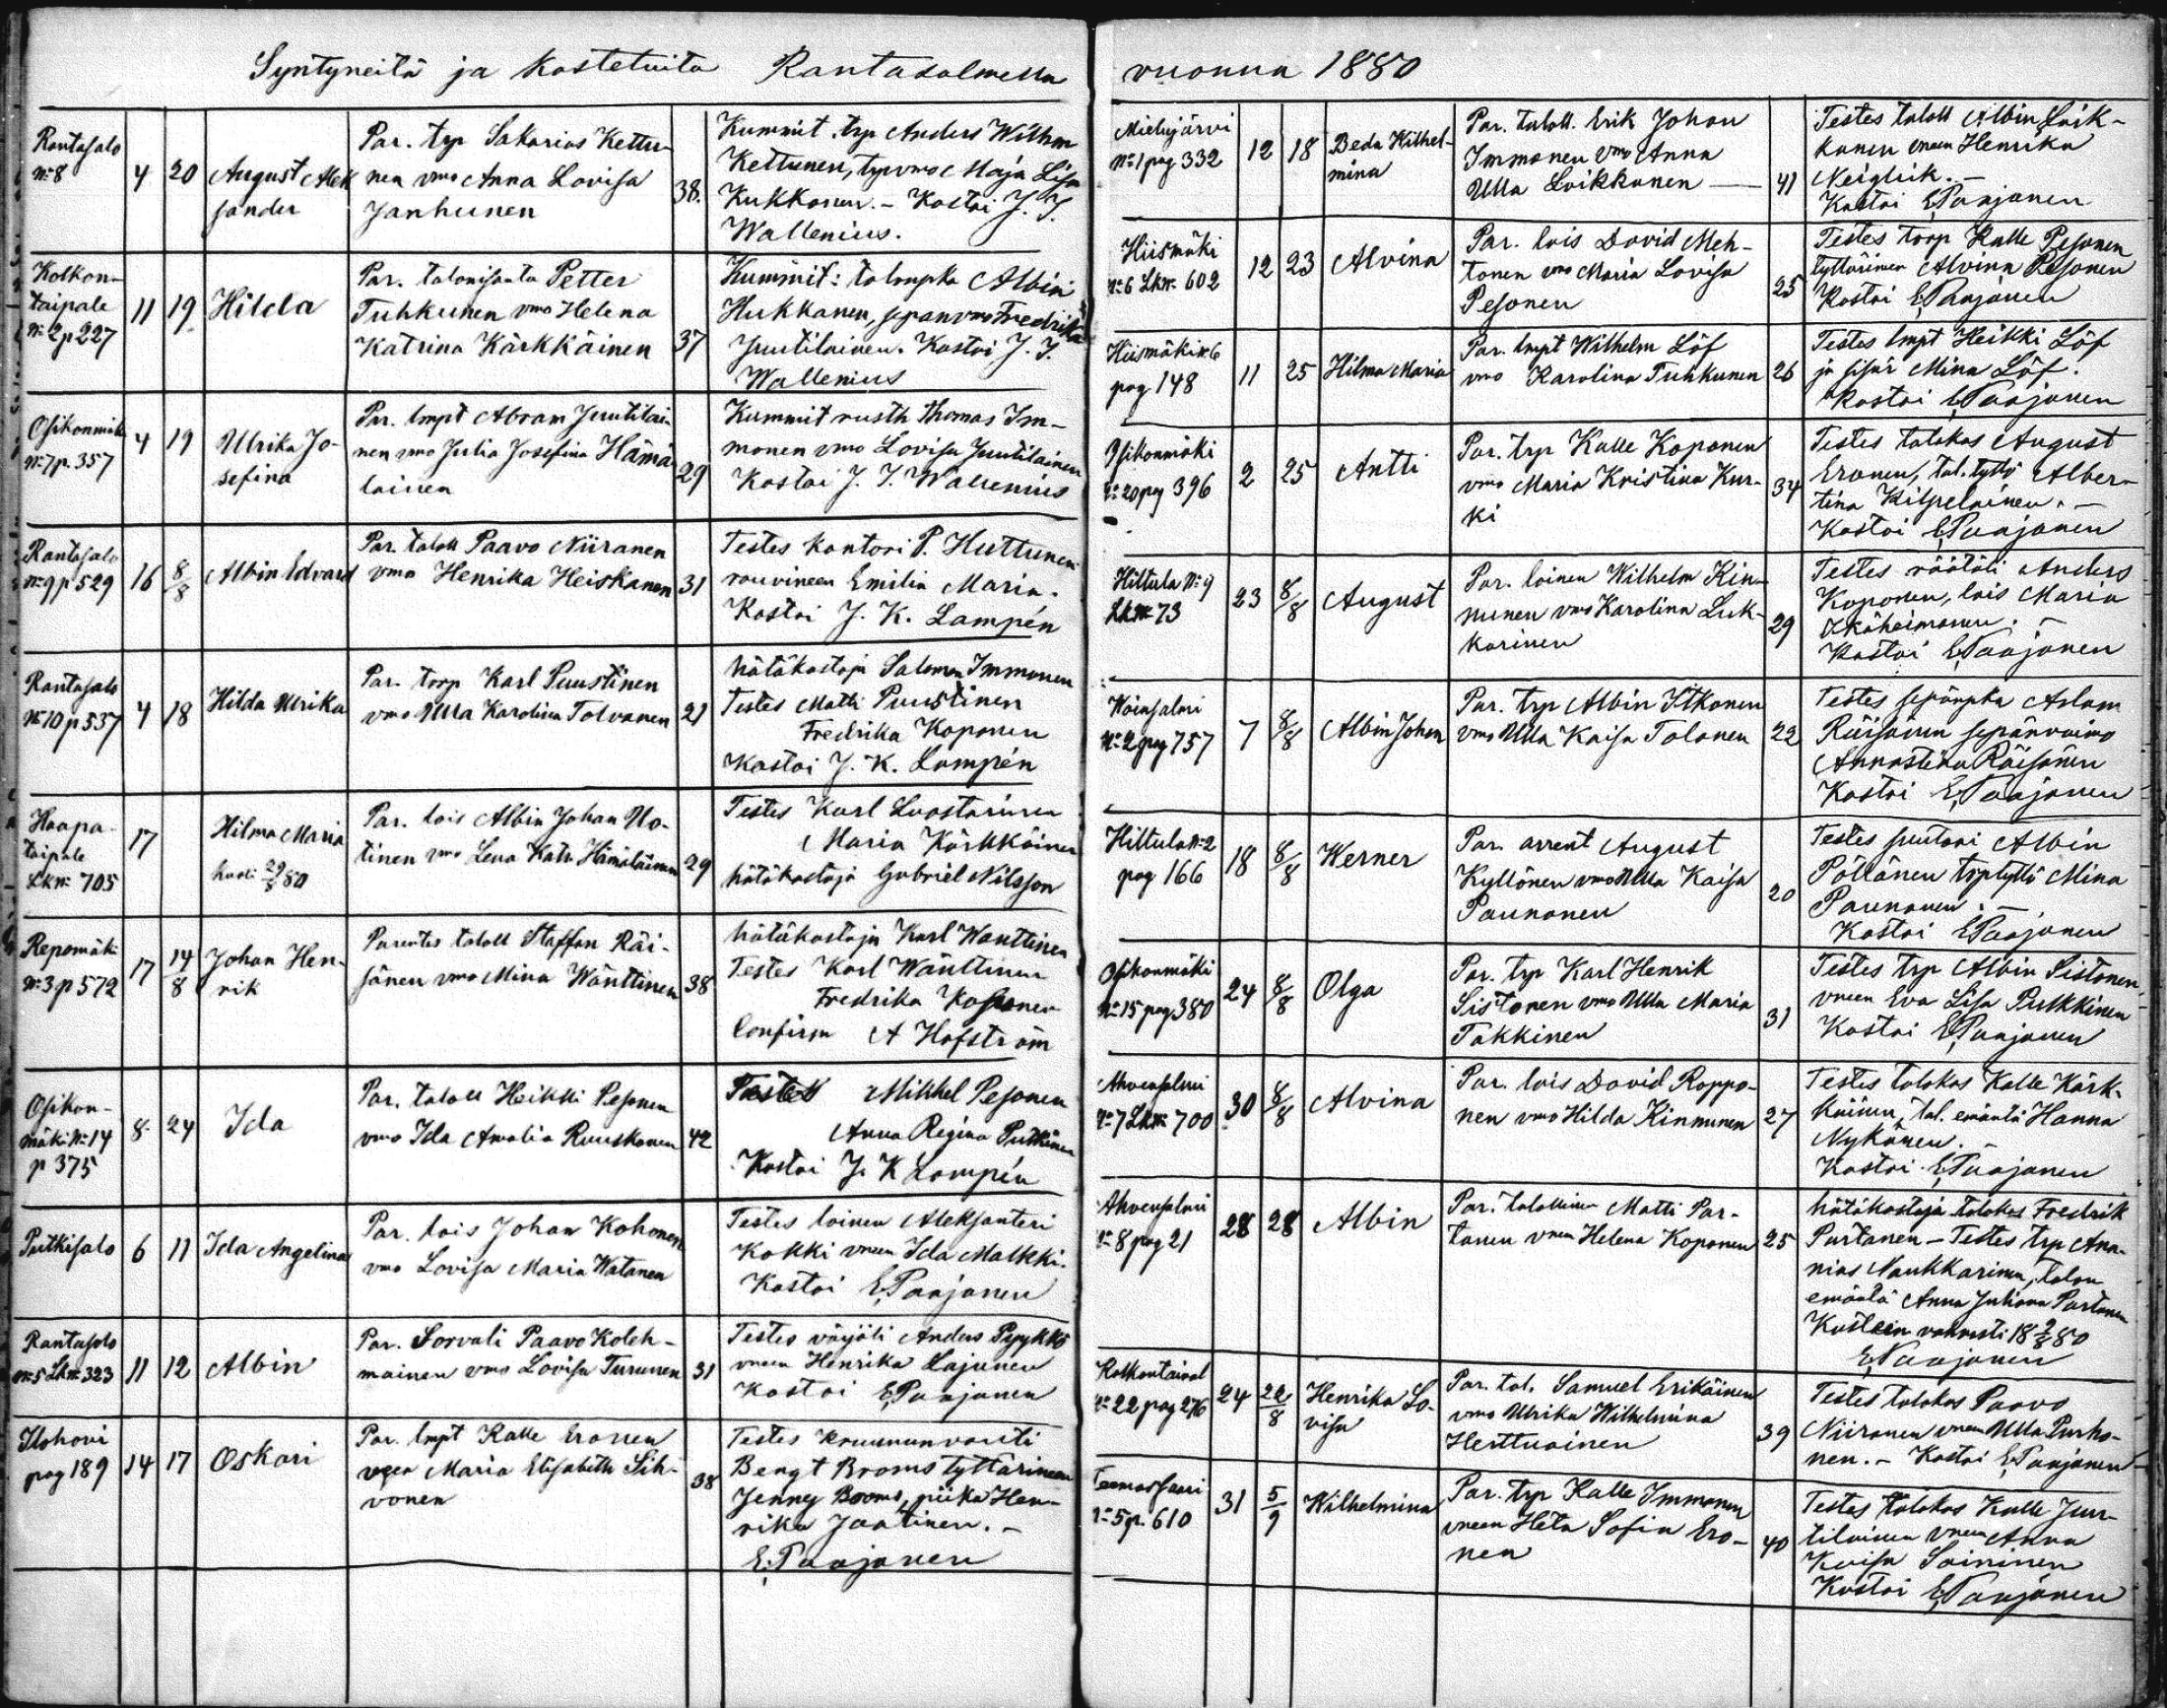 Syntyneitä ja kastetuita Rantasalmella
Rantasalo
№ 8
4 20
August Alek
sander
Par. trp Sakarias Kettu-
nen vmo Anna Lovisa
Janhunen
38.
Kummit. trp Anders Wilhm
Kettunen, trpvmo Maja Lisa
Kukkonen. – Kastoi J. I.
Wallenius.
Kolkon-
taipale
№ 2 p 227
11 19
Hilda
Par. talonisäntä Petter
Tuhkunen vmo Helena
Katrina Kärkkäinen
37
Kummit: talonpka Albin
Hukkanen, sepänvmo Fredrika
Juutilainen. Kastoi J. I.
Wallenius
Osikonmäki
№ 7 p. 357
4 19
Ulrika Jo-
sefina
Par. lmpt Abram Juutilai-
nen vmo Julia Josefina Hämä-
läinen
29
Kummit rusth Thomas Im-
monen vmo Lovisa Juutilainen
Kastoi J. I. Wallenius
Rantasalo
№ 9 p 529
16 8/8
Albin Edvard
Par. taloll Paavo Niiranen
vmo Henrika Heiskanen
31
Testes kantori P. Huttunen
rouvineen Emilia Maria.
Kastoi J. K. Lampén
Rantasalo
№ 10 p 537
4 18
Hilda Ulrika
Par. torp Karl Puustinen
vmo Ulla Karolina Tolvanen
21
hätäkastaja Salomon Immonen
Testes Matti Puustinen
Fredrika Koponen
Kastoi J. K. Lampén
Haapa-
taipale
Lkk. 705
17
Hilma Maria
kuoli 29/8 80
Par. lois Albin Johan No-
tinen vmo Lena Katr. Hämäläinen
29
Testes Karl Luostarinen
Maria Kärkkäinen
hätäkastaja Gabriel Nilsson
Repomäki
№ 3 p 572
17 14/8
Johan Hen-
rik
Parentes taloll Staffan Räi-
sänen vmo Mina Wänttinen
38
hätäkastaja Karl Wänttinen
Testes Karl Wänttinen
Fredrika Kosonen
Confirm A Hofström
Osikon-
mäki № 14
p 375
8 24
Ida
Par. taloll Heikki Pesonen
vmo Ida Amalia Ruuskanen
42
Testes Mikkel Pesonen
Anna Regina Putkinen
Kastoi J. K Lampén
Putkisalo
6 11
Ida Angelina
Par. lois Johan Kohonen
vmo Lovisa Maria Watanen
Testes loinen Aleksanteri
Kokki vneen Ida Malkki.
Kastoi E. Paajanen
Rantasalo
№ 5 Lkk. 323
11 12
Albin
Par. Sorvali Paavo Koleh-
mainen vmo Lovisa Turunen
31
Testes värjäli Anders Pyykkö
vneen Henrika Lajunen
Kastoi E. Paajanen
Ilohovi
pag 189
14 17
Oskari
Par. lmpt Kalle Eronen
vneen Maria Elisabeth Sih-
vonen
38
Testes kruununvouti
Bengt Broms tyttärineen
Jenny Broms, piika Hen-
rika Jaatinen. –
E. Paajanen
vuonna 1880
Mielujärvi
№ 1 pag 332
12 18
Beda Wilhel-
mina
Par. taloll. Erik Johan
Immonen vmo Anna
Ulla Loikkanen —
41
Testes taloll Albin Loik-
kanen vneen Henrika
Neiglick. –
Kastoi E. Paajanen
Hiismäki
№ 6 Lkk. 602
12 23
Alvina
Par. lois David Meh-
tonen vmo Maria Lovisa
Pesonen
25
Testes torp Kalle Pesonen
tyttärineen Alvina Pesonen
Kastoi E. Paajanen
Hiismäki № 6
pag 148
11 25
Hilma Maria
Par. lmpt Wilhelm Löf
vmo Karolina Tuhkunen
26
Testes lmpt Heikki Löf
ja sisar Mina Löf.
Kastoi E. Paajanen
Osikonmäki
№ 20 pag 396
2 25
Antti
Par. trp Kalle Koponen
vmo Maria Kristina Kur-
ki
34
Testes talokas August
Eronen, tal. tyttö Alber-
tina Kilpeläinen. –
Kastoi E. Paajanen
Hiltula № 9
Lkk. 73
23 8/8
August
Par. loinen Wilhelm Kin-
nunen vmo Karolina Luk-
karinen
29
Testes räätäli Anders
Koponen, lois Maria
Ikäheimonen. –
Kastoi E. Paajanen
№ 2 pag 757
7 8/8
Albin Johan
Par. trp Albin Itkonen
vmo Ulla Kaisa Tolonen
22
Testes sepänpka Aslam
Räisänen sepänvaimo
Annastina Räisänen
Kastoi E. Paajanen
Hiltula № 2
pag 166
18 8/8
Werner
Par. arrent August
Kyllönen vmo Ulla Kaisa
Paunonen
20
Testes suutari Albin
Pöllänen trptyttö Mina
Paunonen. –
Kastoi E. Paajanen
Osikonmäki
№ 15 pag 380
24 8/8
Olga
Par. trp Karl Henrik
Sistonen vmo Ulla Maria
Takkinen
31
Testes trp Albin Sistonen,
vneen Eva Lisa Pulkkinen
Kastoi E. Paajanen
Ahvensalmi
№ 7 Lkk. 700
30 8/8
Alvina
Par. lois David Roppo-
nen vmo Hilda Kinnunen
27
Testes talokas Kalle Kärk-
käinen, tal. emäntä Hanna
Nykänen. –
Kastoi E. Paajanen
Ahvensalmi
№ 8 pag 21
28 28
Albin
Par. talollinen Matti Par-
tanen vneen Helena Koponen
25
hätäkastaja talokas Fredrik
Partanen – Testes trp Ana-
nias Naukkarinen, talon
emäntä Anna Juliana Partanen
Kasteen vahvisti 18 2/8 80
E. Paajanen
Kolkontaipal
№ 22 pag 276
24 22/8
Henrika Lo-
visa
Par. tal. Samuel Erikäinen
vmo Ulrika Wilhelmina
Herttuainen
39
Testes talokas Paavo
Niiranen vneen Ulla Purho-
nen. – Kastoi E. Paajanen
Teemassaari
№ 5 p. 610
31 5/9
Wilhelmina
Par. trp Kalle Immonen
vneen Heta Sofia Ero-
nen
40
Testes talokas Kalle Juu-
tilainen vneen Anna
Kaisa Soininen
Kastoi E. Paajanen